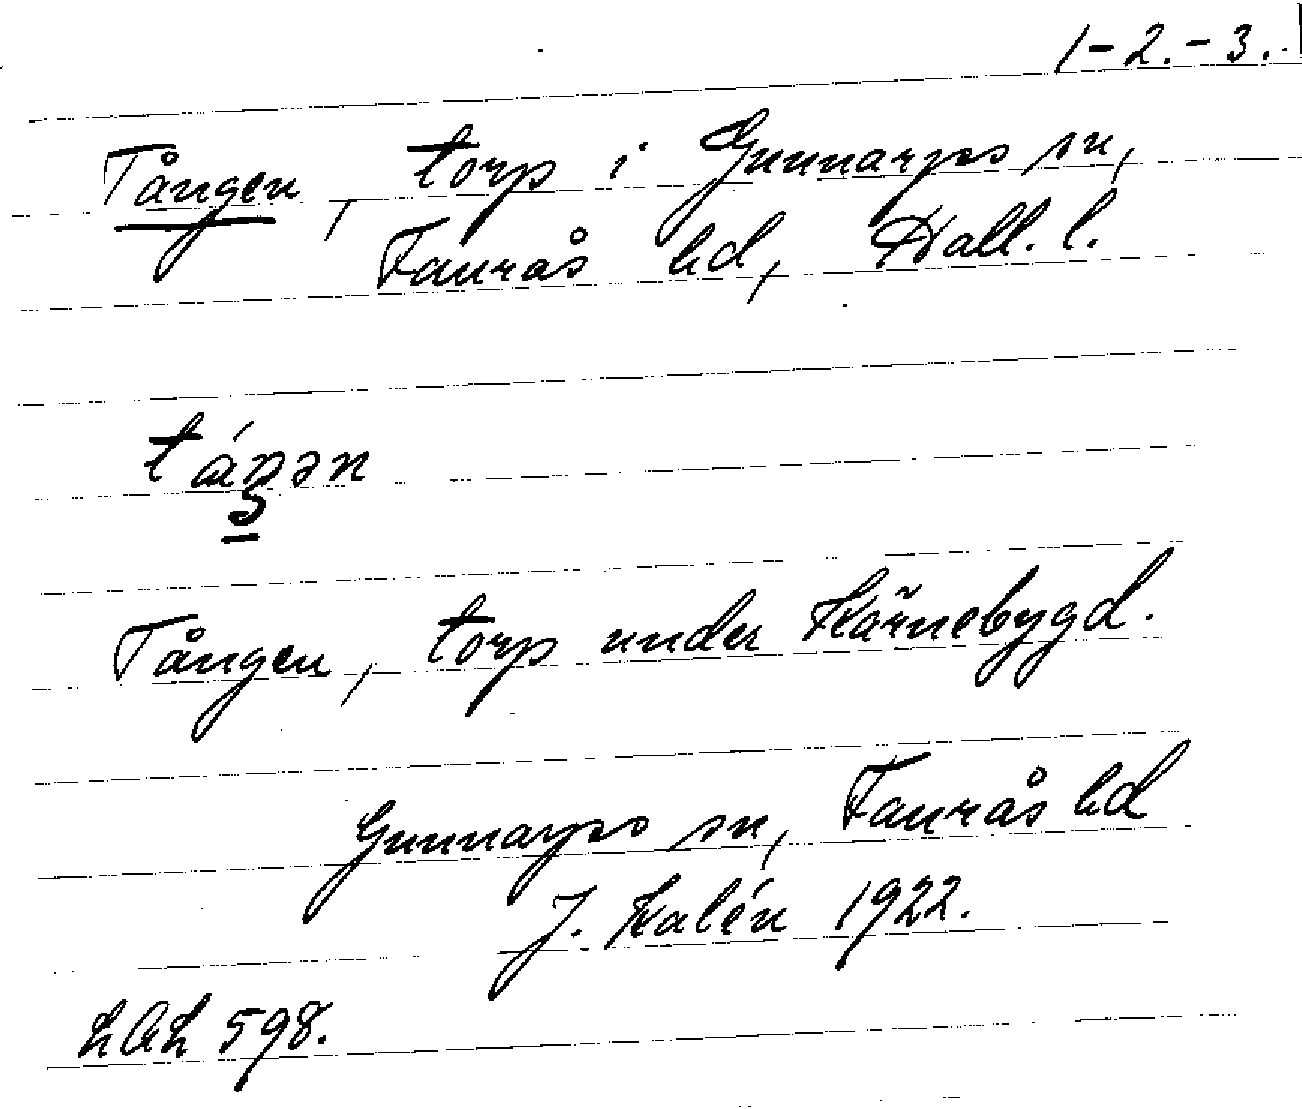 1-2.-3.
Tången, torp i Gunnarps sn,
Faurås hd, Hall. l.
Tången, torp under Kärnebygd.
Gunnarps sn, Faurås hd
J. Kalén 1922.
LAL 598.